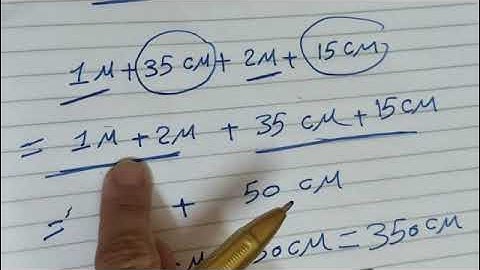 1M + 35 CM + 2M + 15 CM
= 1M + 2M + 35 CM + 15 CM
= + 50 CM
CM = 350 CM